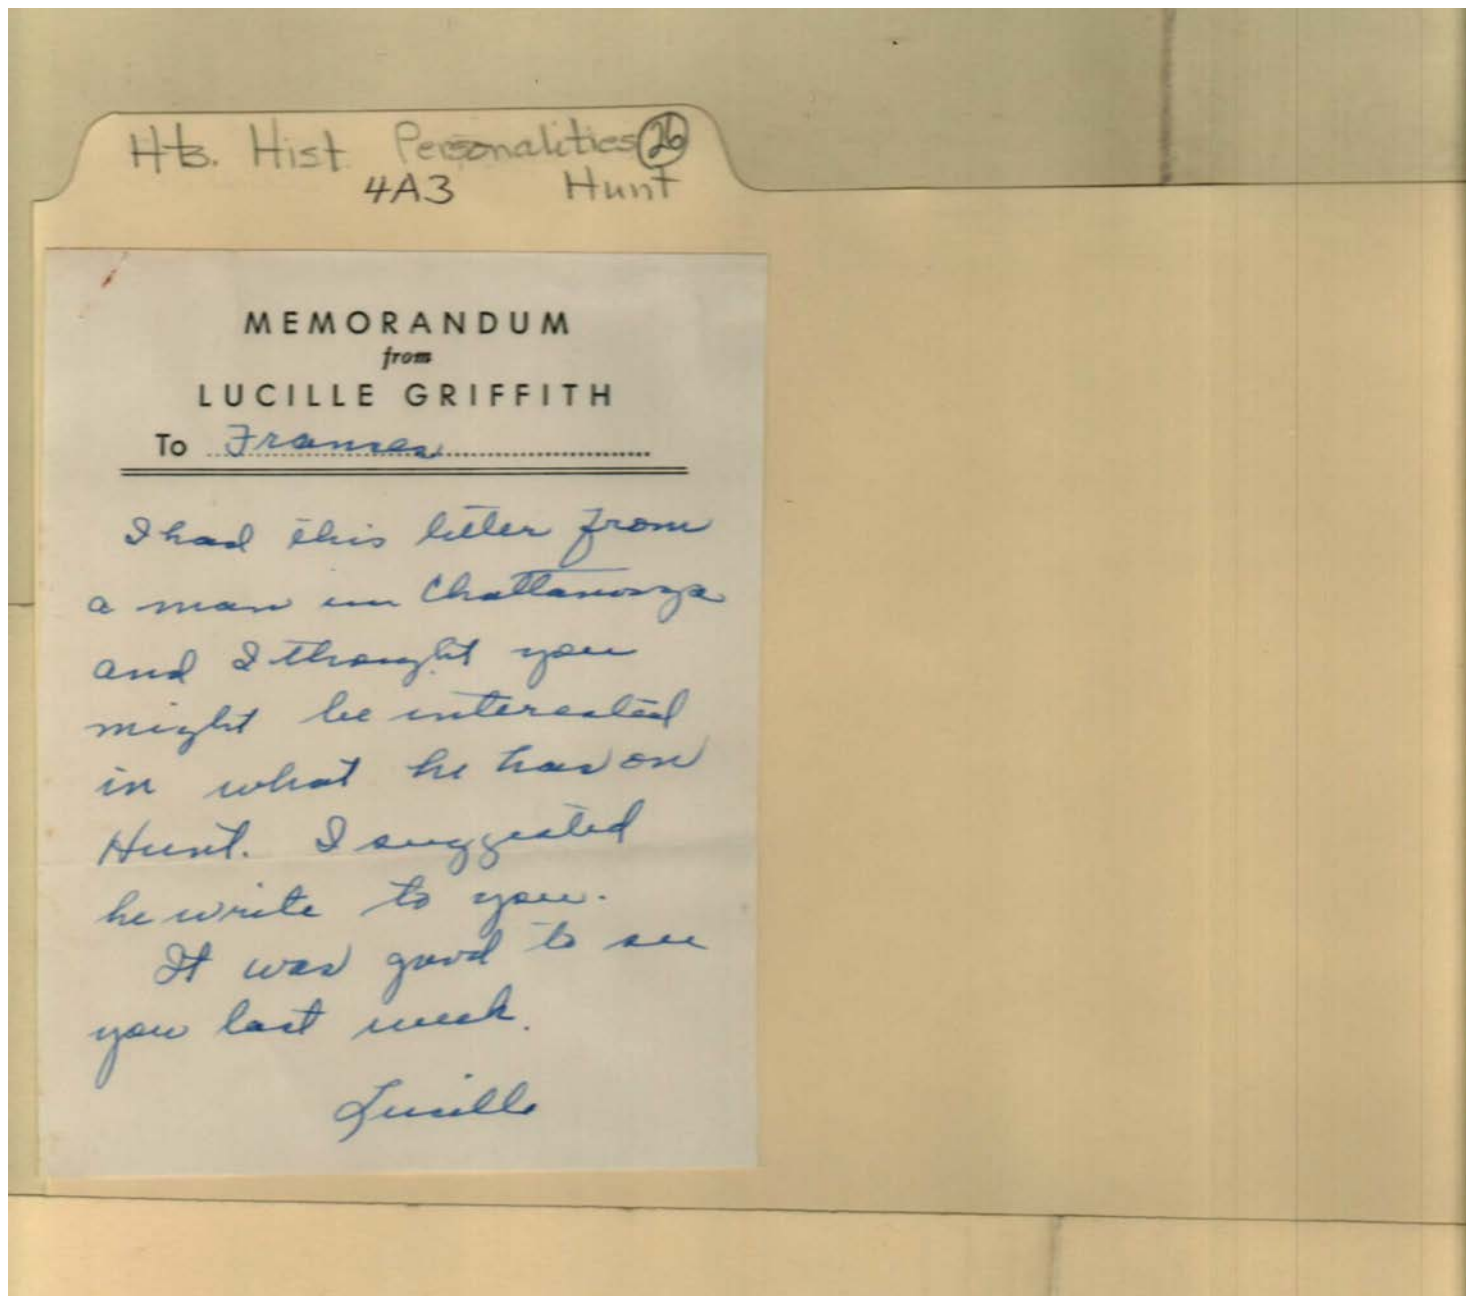 Hts. Hist Personalities 26
4A3 Hunt
MEMORANDUM
from
LUCILLE GRIFFITH
To Frances
I had this letter from
a man in Chattanooga
and I thought you
might be interested
in what he has on
Hunt. I suggested
he write to you.
It was good to see
you last week.
Lucille